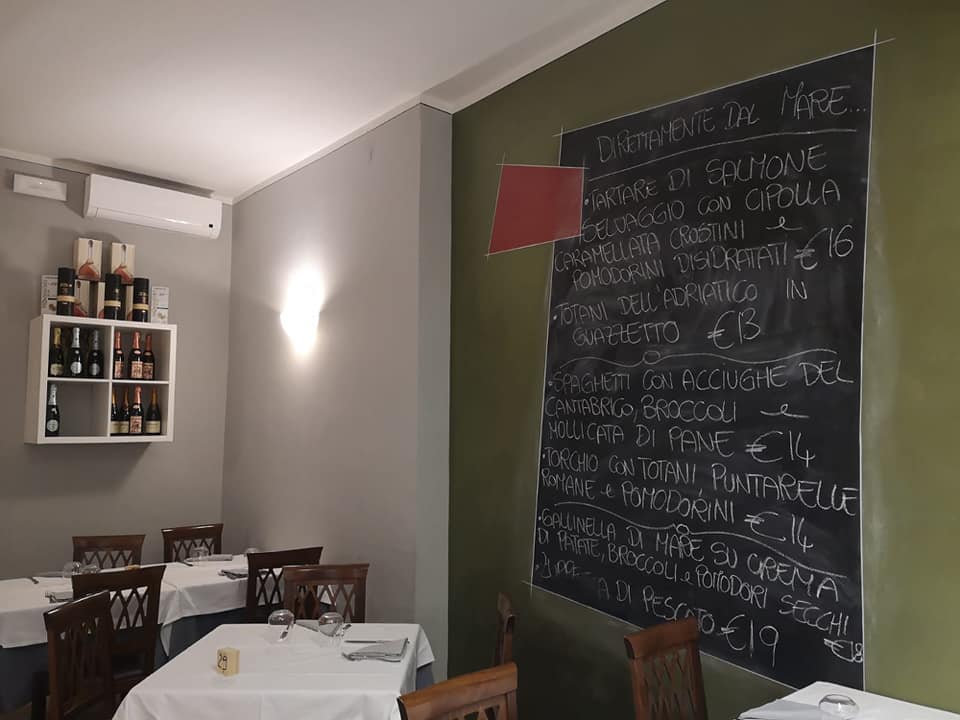 DIRETTAMENTE DAL MARE...
• TARTARE DI SALMONE
SELVAGGIO CON CIPOLLA
CARAMELLATA CROSTINI e
POMODORINI DISIDRATATI €16
• TOTANI DELL'ADRIATICO IN
GUAZZETTO €13
• SPAGHETTI CON ACCIUGHE DEL
CANTABRICO, BROCCOLI e
MOLLICATA DI PANE €14
• TORCHIO CON TOTANI, PUNTARELLE
ROMANE e POMODORINI €14
• GALLINELLA DI MARE SU CREMA
DI PATATE, BROCCOLI e POMODORI SECCHI
€18
A DI PESCATO €19
29